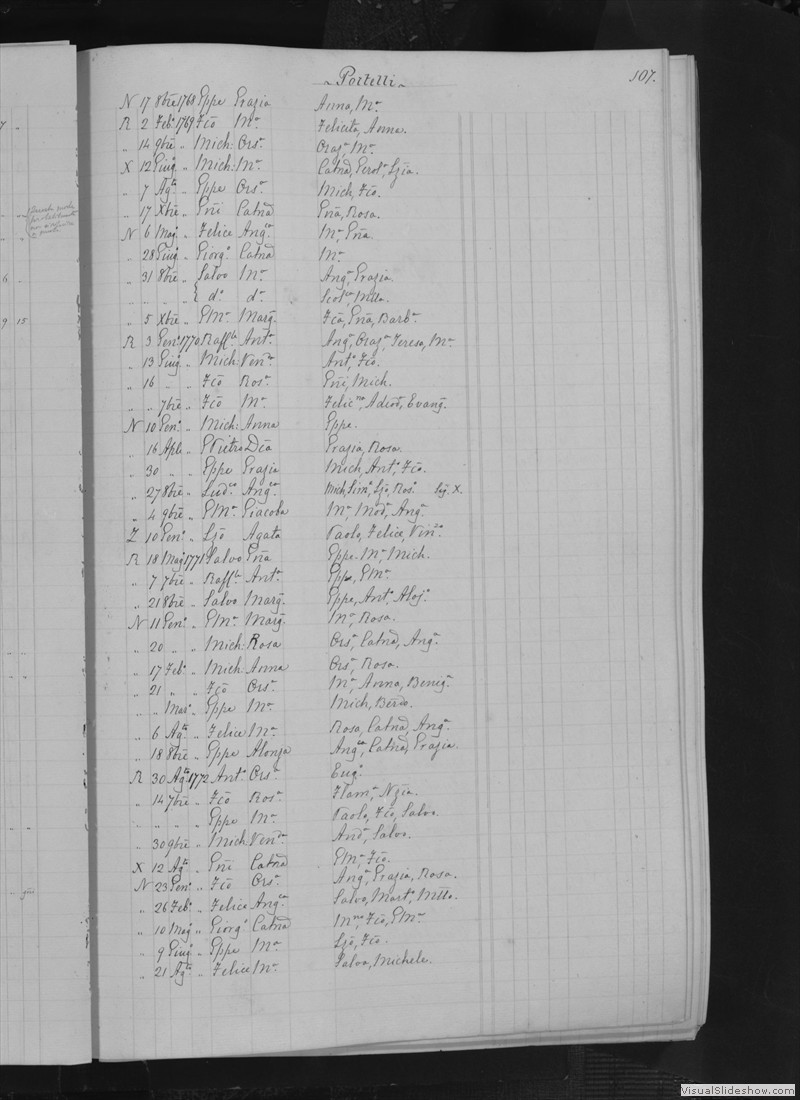 Portelli
107.
N 17 8bre 1768 Gppe Grazia Anna, Ma
R 2 Feb° 1769 Fco Ma Felicita, Anna.
" 14 9bre " Mich: Orsa Orasa, Ma
X 12 Giug° " Mich: Ma Catnā, Perola, Ljia.
" 7 Agto " Gppe Orsa Mich, Fco.
" 17 Xbre " Gnī Catnā Gnā, Rosa.
N 6 Mag " Felice Angca Ma, Gnā.
" 28 Giug° " Giorg° Catnā Ma
" 31 8bre " Salvo Ma Anga, Grazia.
" " " { d° d° Mtta.
" 5 Xbre " GMa Marg̃. Fcā, Gnā, Barba.
R 3 Gen° 1770 Raffle Anta. Anga, Orasa, Teresa, Ma
" 13 Giug° " Mich: Venra Ant°, Fco.
" 16 " " Fco Rosa. Gnī, Mich.
" " 7bre " Fco Ma Felicna, Adeōt, Evang̃.
N 10 Gen° " Mich: Anna Gppe.
" 16 Aple " GPietro Dcā Grazia, Rosa.
" 30 " " Gppe Grazia Mich, Ant°, Fco.
" 27 8bre " Lud° Angca Mich, Sim°, Ljo, Ros°. Seg. X.
" 4 9bre " GMa Giacoba Ma, Moda, Anga.
Z 10 Gen° " Ljo Agata Paolo, Felice, Vin°.
R 18 Mag 1771 Salvo Gnā Gppe, Ma, Mich.
" 7 7bre " Raffle Anta. Gppe, GMa
" 21 8bre " Salvo Marg̃. Gppe, Ant°, Aloj°
N 11 Gen° " GMa Marg̃. Ma, Rosa.
" 20 " " Mich: Rosa Orsa, Catnā, Anga.
" 17 Feb° " Mich: Anna Orsa, Rosa.
" 21 " " Fco Orsa. Ma, Anna, Beniga.
" " Mar° " Gppe Ma Mich, Berdo.
" 6 Agto " Felice Ma Rosa, Catnā, Anga
" 18 8bre " Gppe Alonza Angca, Catnā, Grazia.
R 30 Agto 1772 Ant° Orsa Eug°.
" 14 7bre " Fco Rosa. Flama, Nzia.
" " " " Gppe Ma Paolo, Fco, Salvo.
" 30 9bre " Mich: Venra Anda, Salvo.
X 12 Agto " Gnī Catnā GMa, Fco.
N 23 Gen° " Fco Orsa. Anga, Grazia, Rosa.
" 26 Feb° " Felice Angca Salvo, Mart°, Mtta.
" 10 Mag " Giorg° Catnā Mna, Fco, GMa
" 9 Giug° " Gppe Ma Ljo, Fco.
" 21 Agto " Felice Ma Salvo, Michele.
VisualSlideshow.com